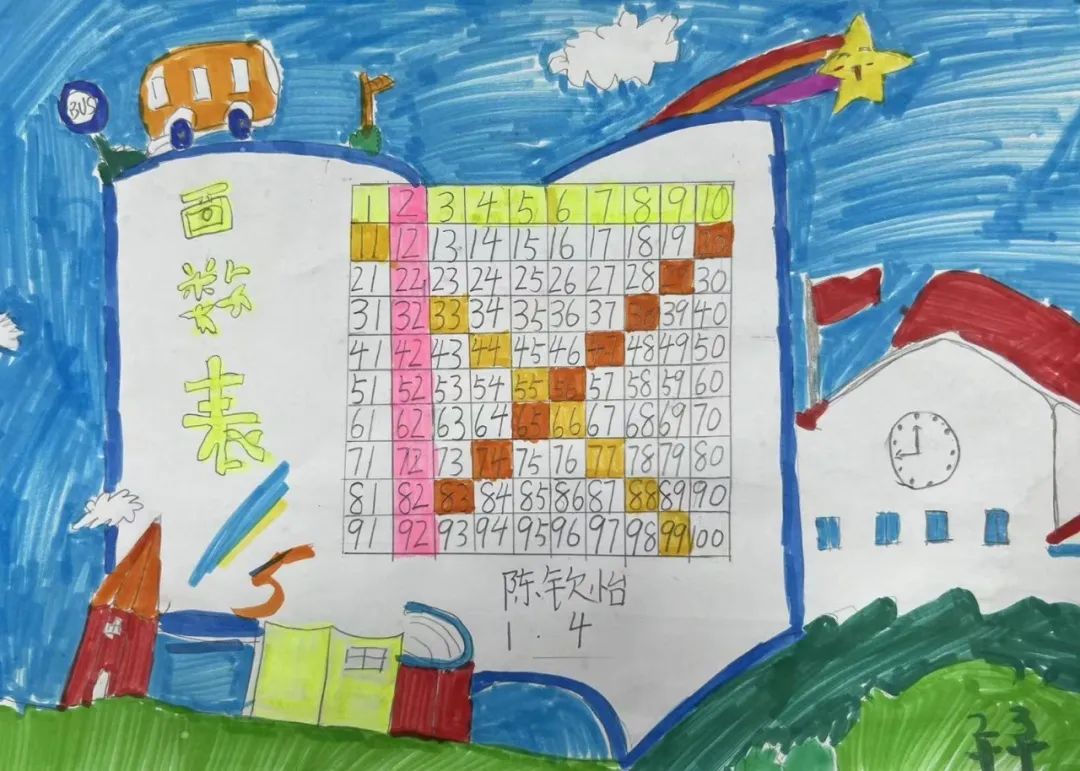 BUS
百数表
1 2 3 4 5 6 7 8 9 10
11 12 13 14 15 16 17 18 19 20
21 22 23 24 25 26 27 28 29 30
31 32 33 34 35 36 37 38 39 40
41 42 43 44 45 46 47 48 49 50
51 52 53 54 55 56 57 58 59 60
61 62 63 64 65 66 67 68 69 70
71 72 73 74 75 76 77 78 79 80
81 82 83 84 85 86 87 88 89 90
91 92 93 94 95 96 97 98 99 100
陈钦怡
1.4